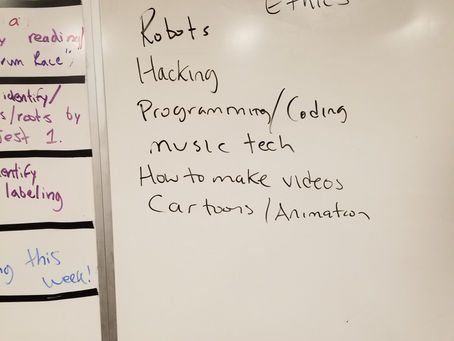 a
reading/
Race",
identify/
s/roots by
Test 1.
identify
labeling
this
week!
Ethics
Robots
Hacking
Programming/Coding
music tech
How to make videos
Cartoons/Animation